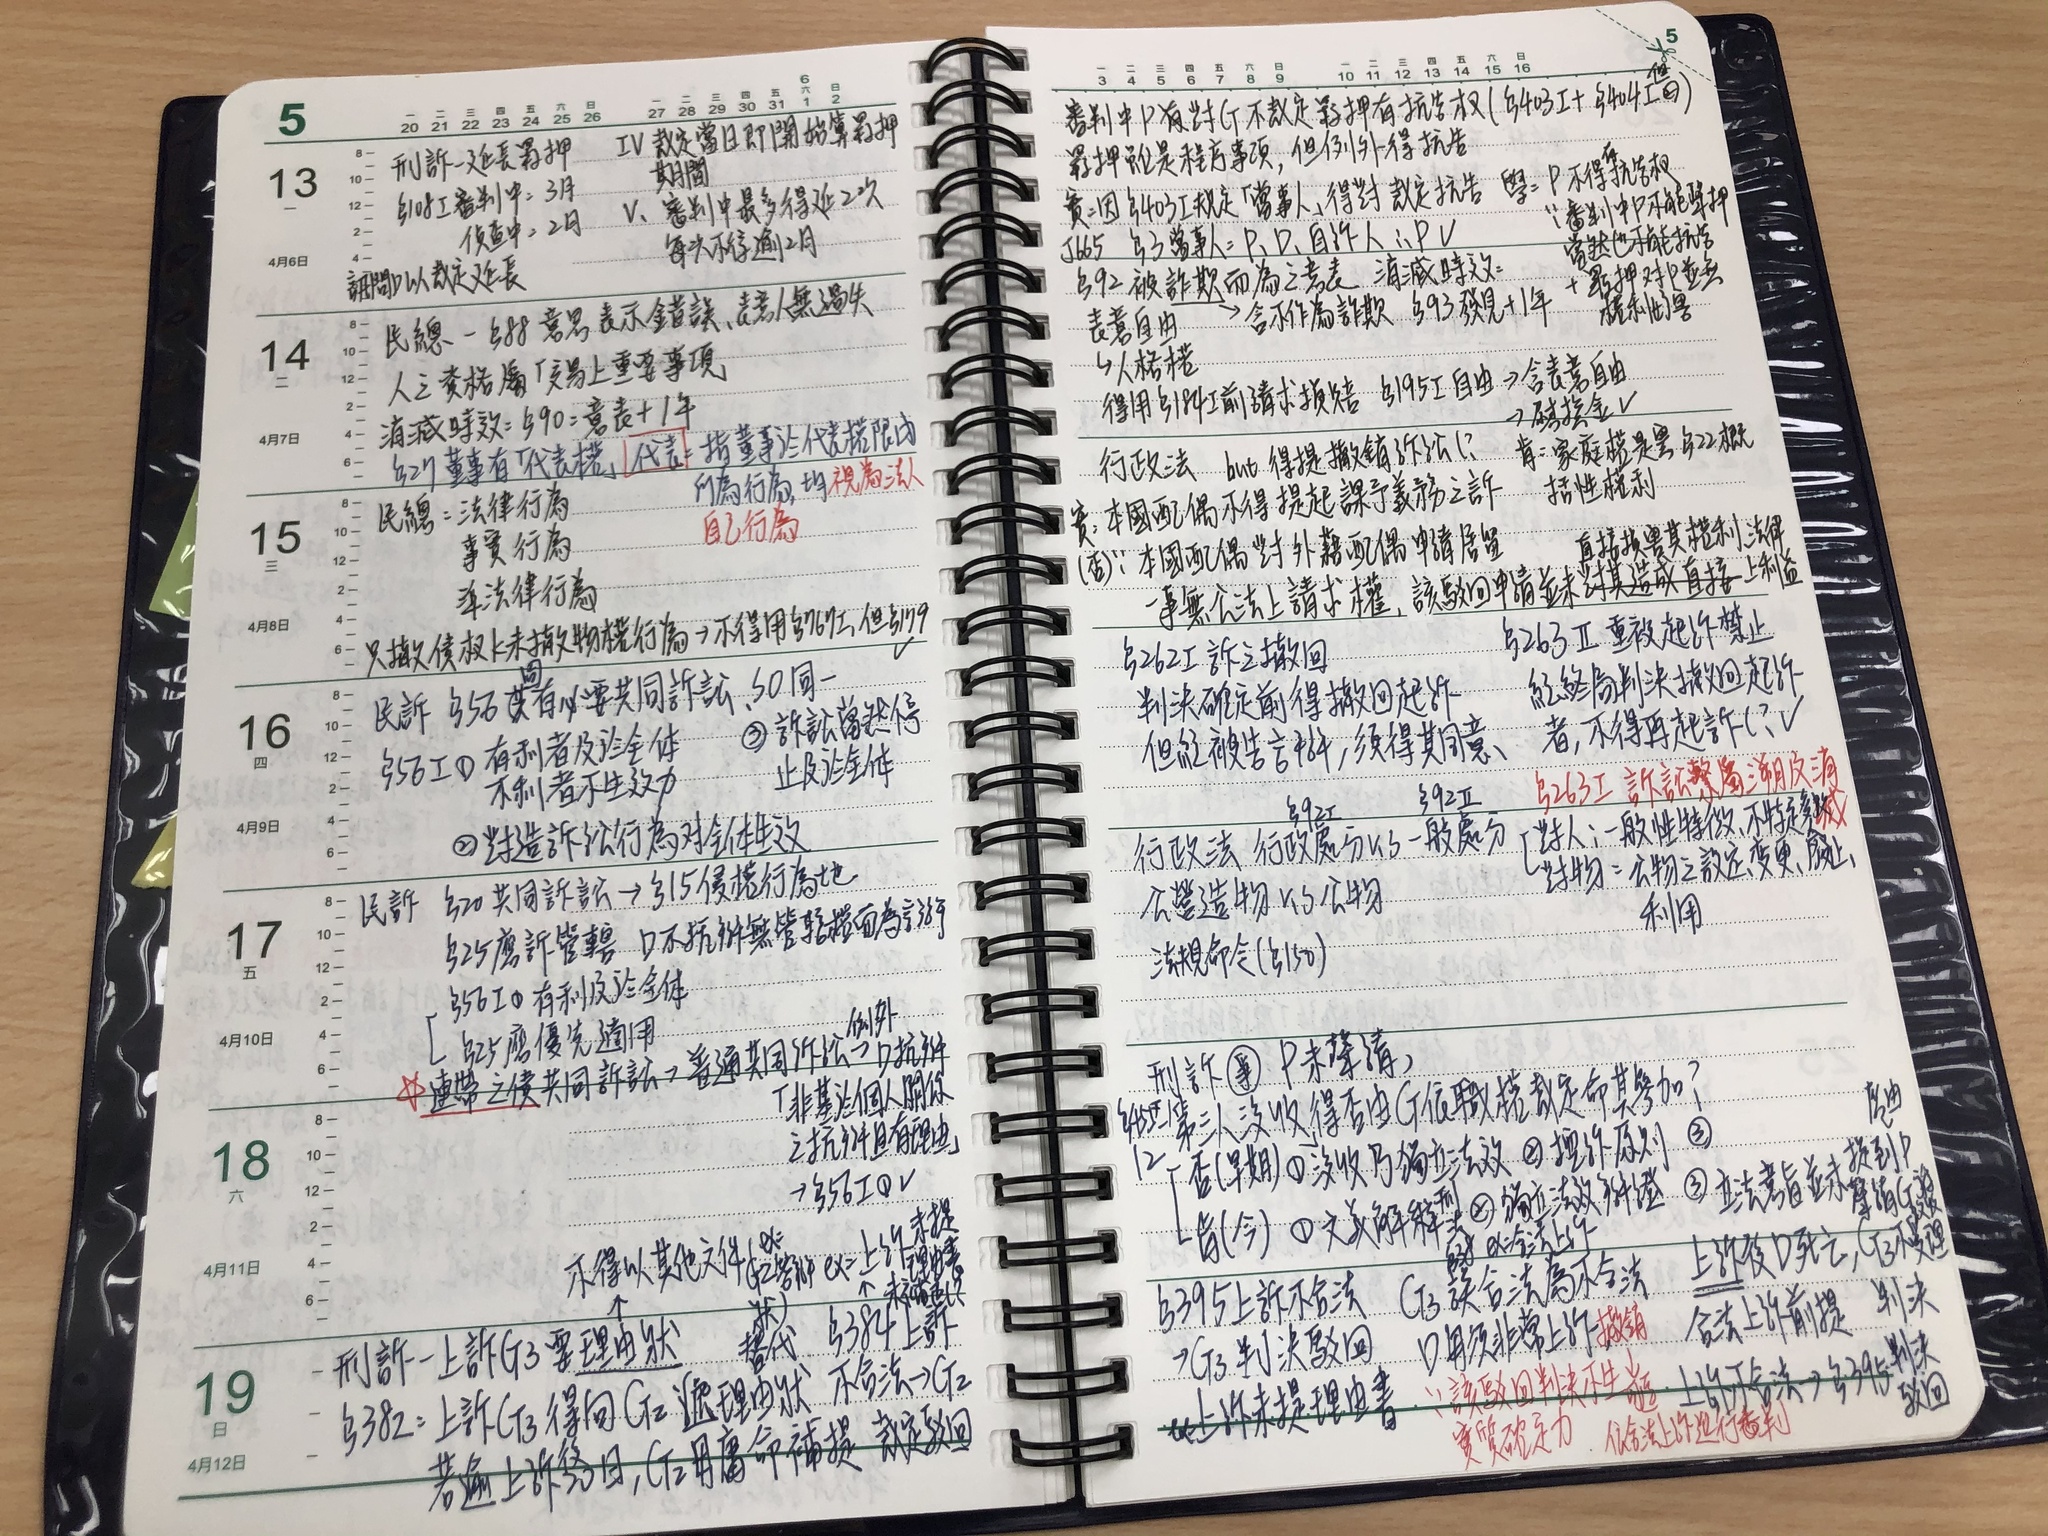 5
20 21 22 23 24 25 26 27 28 29 30 31 1 2
13
一
4月6日
刑訴-延長羈押
§108I 審判中=3月
偵查中=2月
訊問D以裁定延長
IV 裁定當日即開始算羈押
期間
V、審判中最多得延2次
每次不得逾2月
14
二
4月7日
民總-§88 意思表示錯誤、表意人無過失
人之資格屬「交易上重要事項
消滅時效=§90=意表+1年
§27 董事有「代表權」代表=指董事於代表權限內
所為行為,均視為法人
自己行為
15
三
4月8日
民總=法律行為
事實行為
準法律行為
只撤債权上未撤物權行為→不得用§767I,但§179
✓
16
四
4月9日
民訴 §56 固有必要共同訴訟、SO同一
§56I① 有利者及於全体
不利者不生效力
③訴訟當然停
止及於全体
②對造訴訟行為对全体生效
17
五
4月10日
民訴 §20共同訴訟→§15侵權行為地
§25應訴管轄 D不抗辯無管轄權而為言詞辯
§56I① 有利及於全体
§25應優先適用
例外
連帶之債共同訴訟→普通共同訴訟→D抗辯
「非基於個人關係
之抗辯且有理由」
→§56I①✓
18
六
4月11日
不得以其他文件
替代
ex=上訴未提
理由書
19
日
4月12日
刑訴-上訴G3要理由狀
§384上訴
§382=上訴G3得向G2遞理由狀 不合法→G2
若逾上訴終日,G2毋庸命補提 裁定駁回
5
3 4 5 6 7 8 9 10 11 12 13 14 15 16
審判中P有對G不裁定羈押有抗告权(§403I+§404I但②)
羈押雖是程序事項,但例外得抗告
實=因§403I規定「當事人」得對裁定抗告
J665 §3當事人=P、D、自訴人∴P✓
學=P不得有抗告权
∵審判中P不能聲押
當然也不能抗告
+羈押对P並無
權利侵害
§92被詐欺而為之意表 消滅時效=
表意自由 →含不作為詐欺 §93發見+1年
↳人格權
得用§184I前請求損賠 §195I自由→含表意自由
→慰撫金✓
行政法 but得提撤銷訴訟?
實:本國配偶不得提起課予義務之訴
(否)∵本國配偶對外籍配偶申請居留
一事無公法上請求權,該駁回申請並未對其造成直接上利益
肯=家庭權是§22概
括性權利
直接損害其權利法律
§262I訴之撤回
判決確定前得撤回起訴
但經被告言辯,須得其同意、
§263II重複起訴禁止
經終局判決撤回起訴
者,不得再起訴✓
§263I 訴訟繫屬溯及消滅
§92I §92II
行政法 行政處分VS一般處分
對人:一般性特徵、不特定多數
對物=公物之設定、變更、廢止、
利用
公營造物VS公物
法規命令(§150)
刑訴 P未聲請,
第三人沒收得否由G依職權裁定命其參加?
否(早期)①沒收乃獨立法效②控訴原則③
立法意旨並未提到P
肯(今)①文義解釋②獨立法效
§395上訴不合法
→G3判決駁回
上訴未提理由書
G3誤合法為不合法
D毋須非常上訴撤銷
∵該駁回判決不生
實質確定力
依合法上訴進行審判
上訴後D死亡,G3不受理
合法上訴前提 判決
上訴不合法→§395判決
駁回